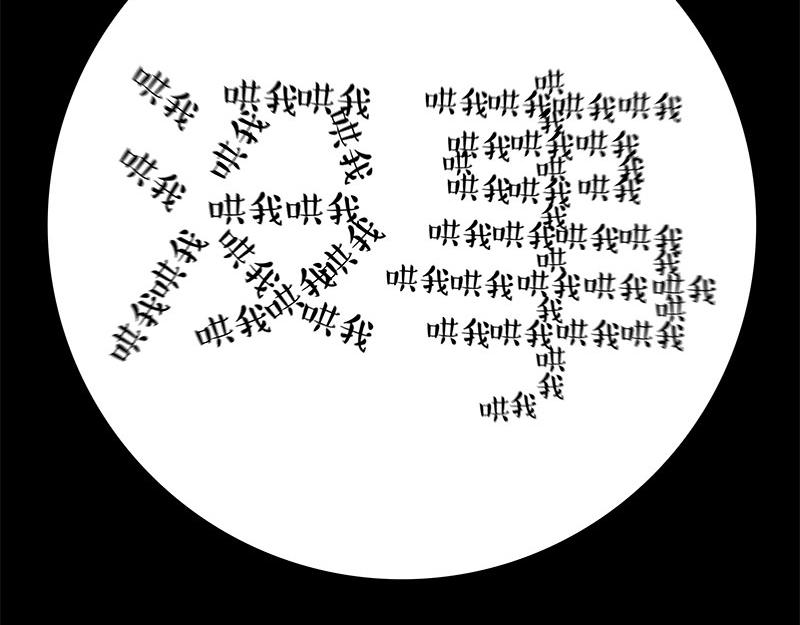 没事
哄我哄我哄我哄我哄我哄我哄我哄我哄我哄我哄我哄我哄我哄我
哄我哄我哄我哄我哄我哄我哄我哄我哄我哄我哄我哄我哄我哄我哄我哄我哄我哄我哄我哄我哄我哄我哄我哄我哄我哄我哄我哄我哄我